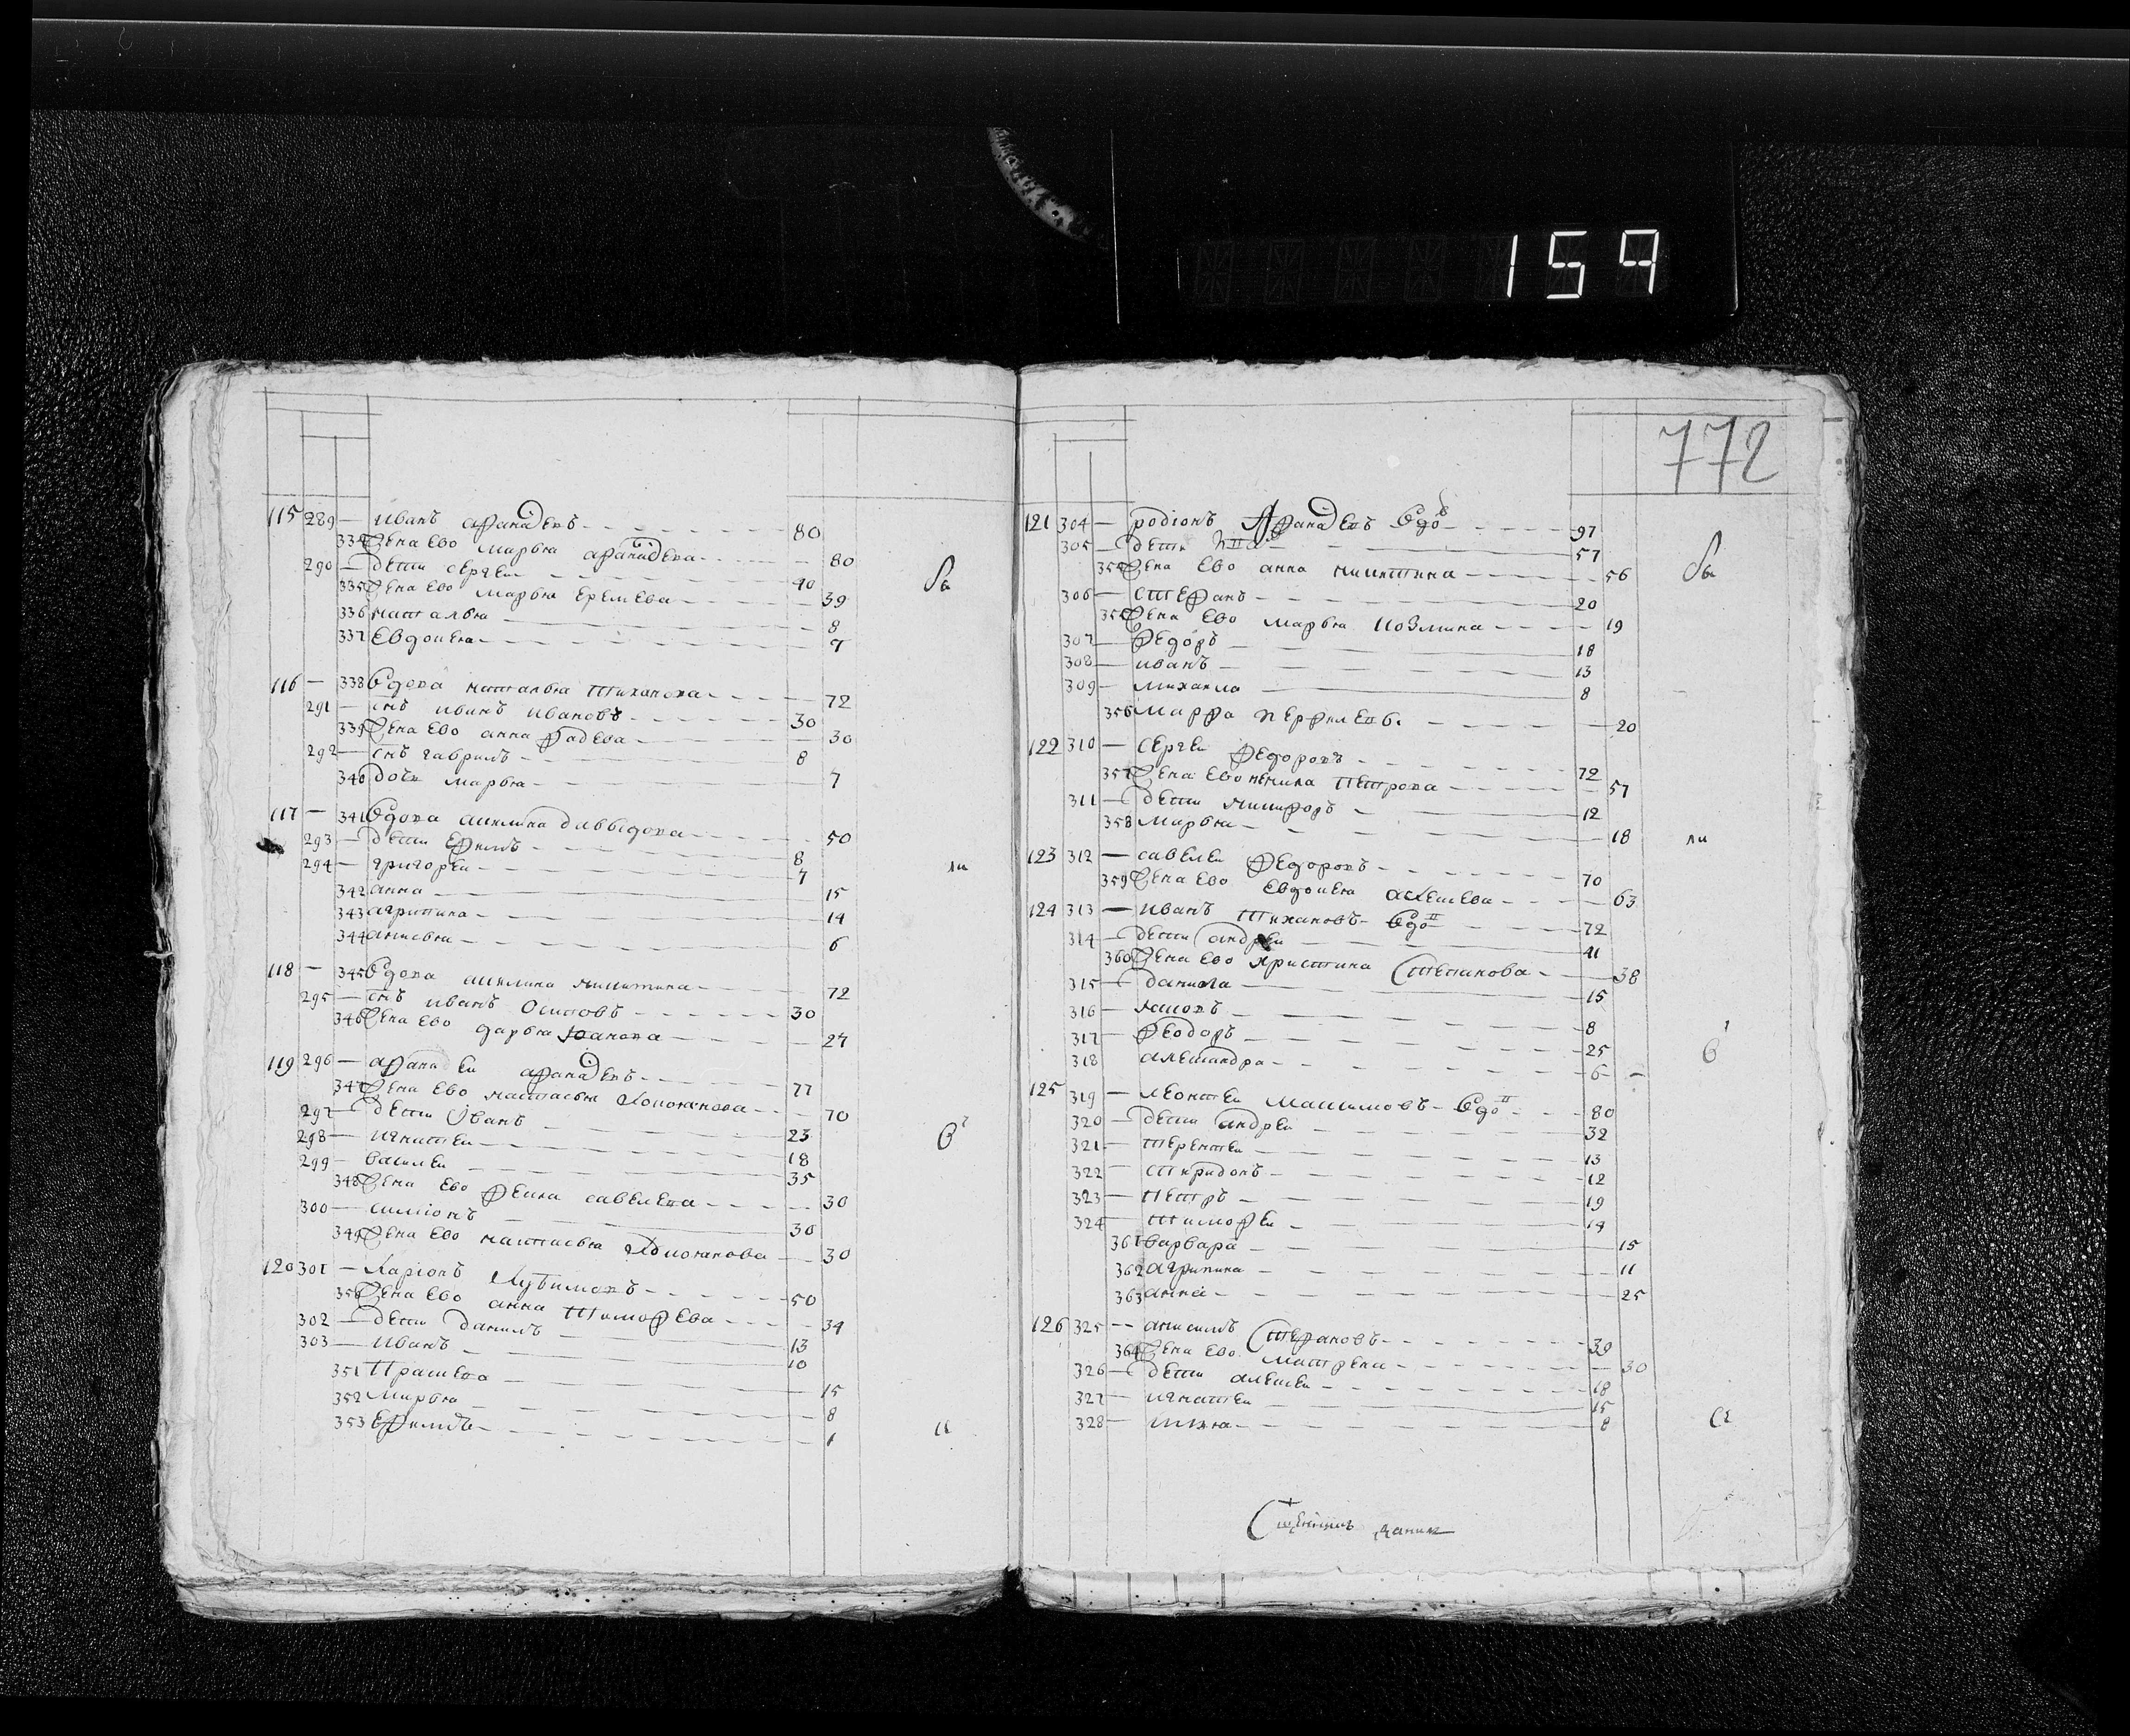 159
772
115 289 — иванъ афанасевъ 80
334 жена ево марья афанасева 80
290 — дети сергеи 40
335 жена ево марья еремеева 39
336 наталья 8
337 евдокея 7
116 — 338 вдова наталья тиханова 72
291 — снъ иванъ ивановъ 30
339 жена ево анна фадеева 30
292 — снъ гаврилъ 8
340 дочь марья 7
117 — 341 вдова акилина давыдова 50
293 — дети ефимъ 8
294 — григореи 7
342 анна 15
343 агрипина 14
344 анисья 6
118 — 345 вдова акилина никитина 72
295 — снъ иванъ осиповъ 30
346 жена ево дарья 27
119 296 — афанасеи афанасевъ 77
347 жена ево настасья 70
297 — дети иванъ 23
298 — игнатеи 18
299 — василеи 35
348 жена ево савелева 30
300 — симионъ 30
349 жена ево настасья 30
120 301 — ларионъ 50
350 жена ево анна тимофеева 34
302 — дети данилъ 13
303 — иванъ 10
351 прасковя 15
352 марья 8
353 1
бы
ли
в
се
121 304 — родионъ афанасевъ вдовъ 97
305 — дети 57
354 жена ево анна никитина 56
306 — стефанъ 20
355 жена ево марья козмина 19
307 — федоръ 18
308 — иванъ 13
309 — михаила 8
356 марфа перфилева 20
122 310 — сергеи федоровъ 72
357 жена ево петрова 57
311 — дети никифоръ 12
358 марья 18
123 312 — савелеи федоровъ 70
359 жена ево евдокея алексеева 63
124 313 — иванъ тихановъ вдовъ 72
314 — дети андреи 41
360 жена ево христина степанова 38
315 — данила 15
316 8
317 — феодоръ 25
318 александра 6
125 319 — леонтеи максимовъ вдовъ 80
320 — дети андреи 32
321 — терентеи 13
322 — спиридонъ 12
323 — петръ 19
324 — тимофеи 14
361 варвара 15
362 агрипина 11
363 анна 25
126 325 — анисимъ стефановъ 39
364 жена ево матрена 30
326 — дети алексеи 18
327 — игнатеи 15
328 8
бы
ли
в
се
Сщенникъ данил